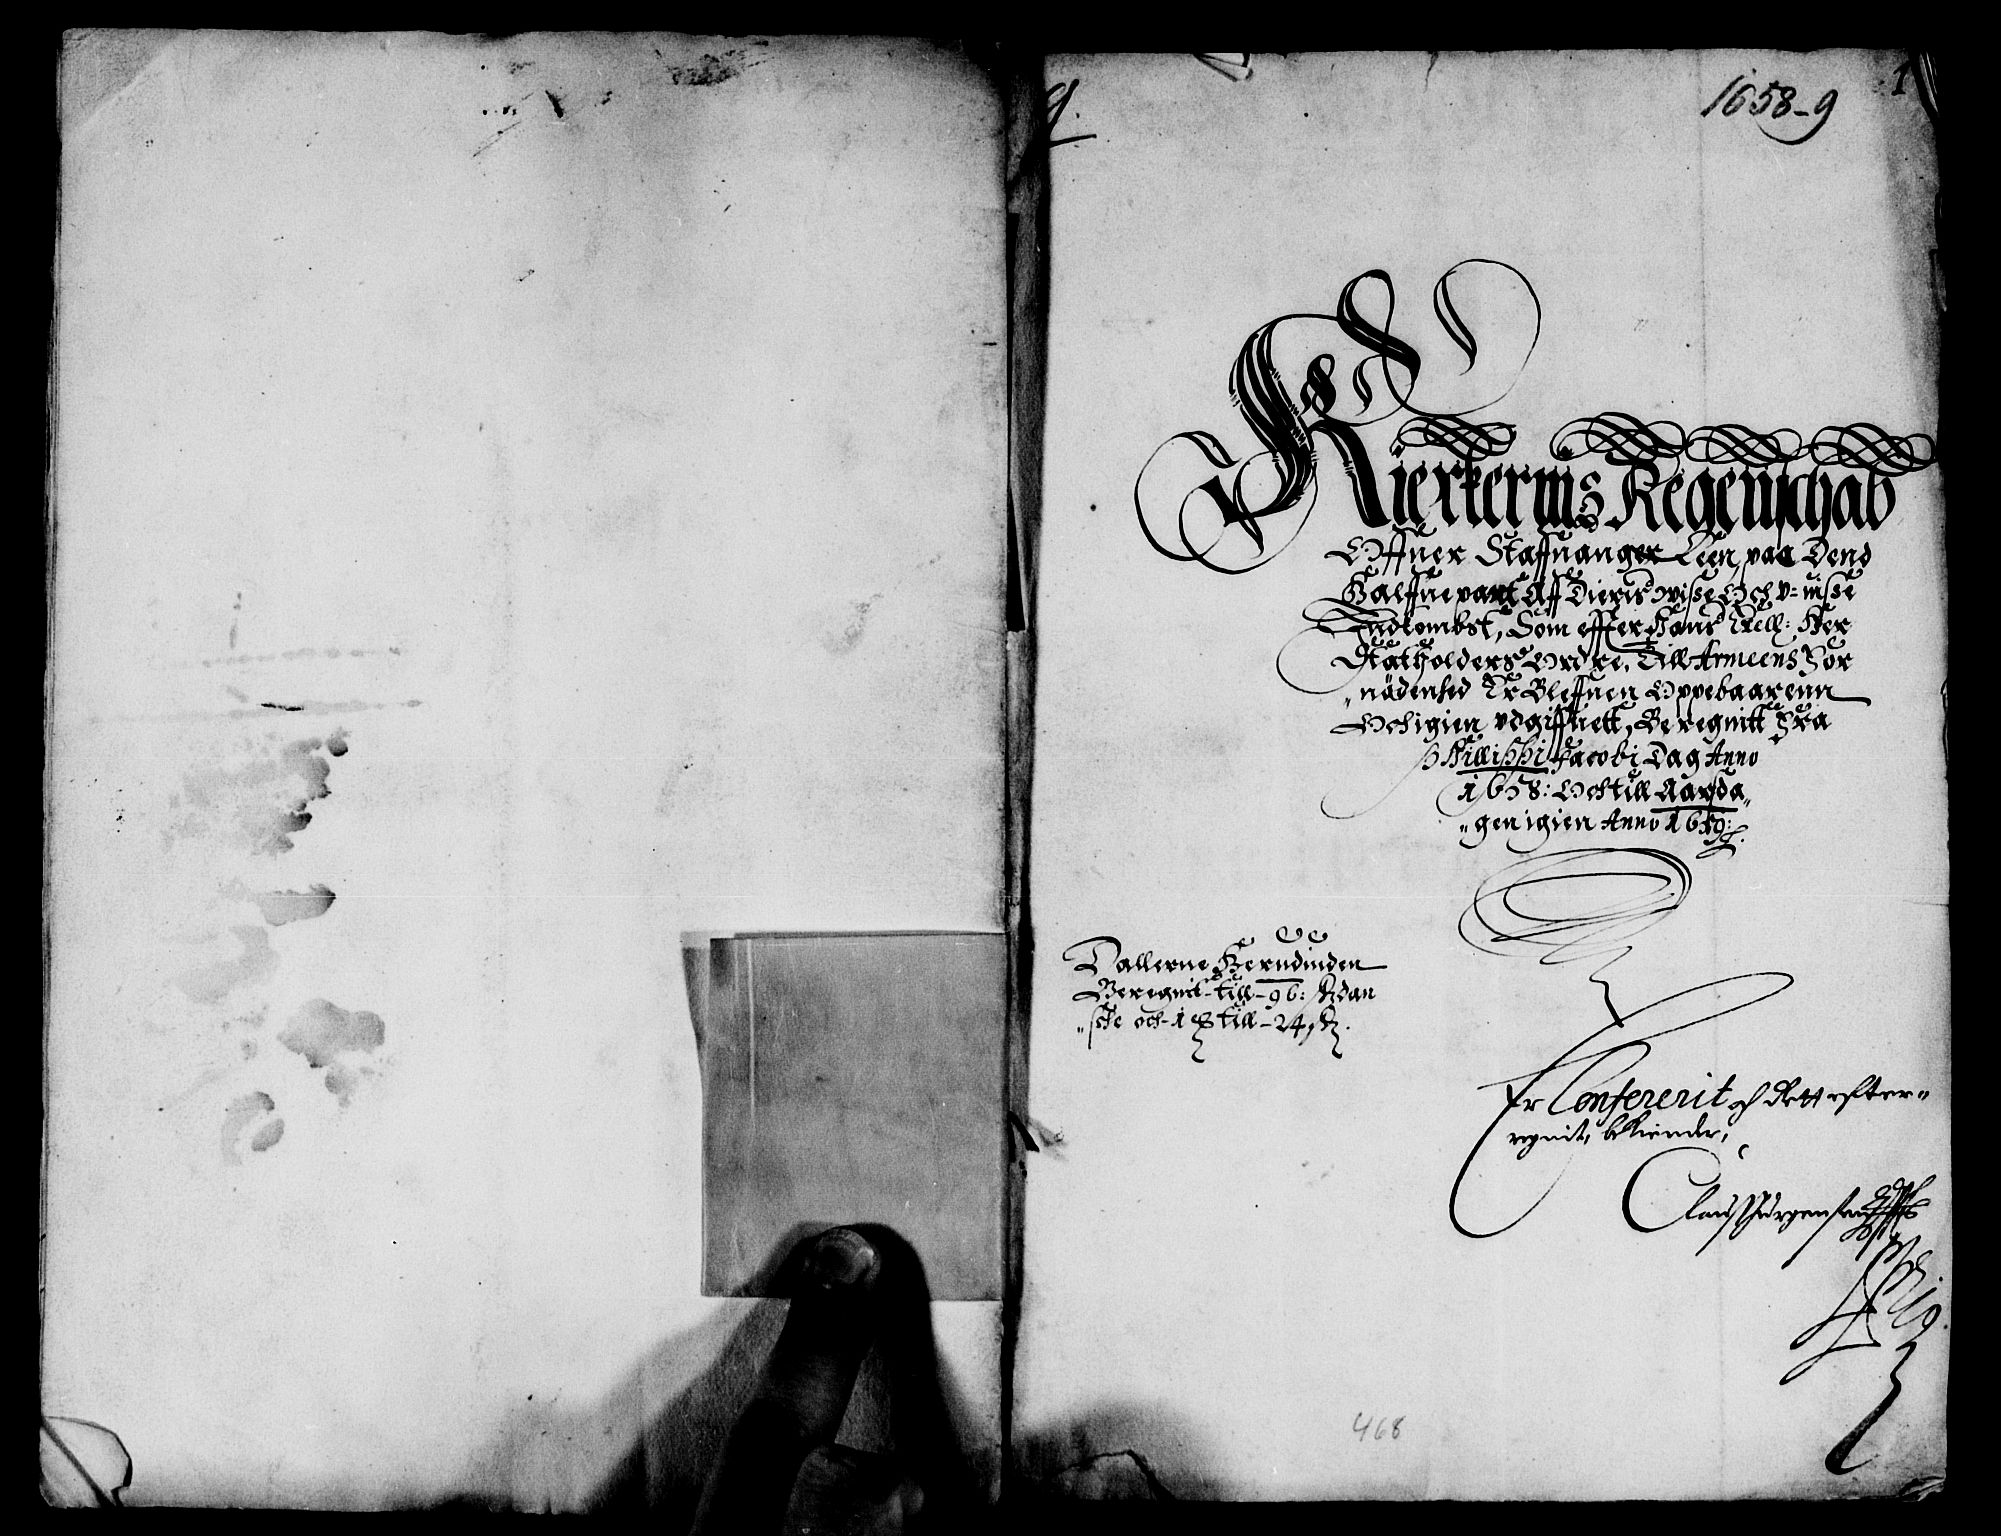 1658-9
1
9.
Kierkerns Regenschab
Offuer Staffuanger Leen, paa Dend
Halffuepart Aff Dieris Wisse Och V-uisse
Indkombst, Som effter Hans Excell: Her
Statholders Ordre, Till Armeens For
"nödenhed Er Bleffuen Oppebaarenn
Och igien vdgiffuett, Beregnitt Fra
Phillippi Jacobi Dag Anno
1658: Och till Aarsda"
"gen igien Anno 1659:
Dallerne Herudinden
Beregnit till 96: sk dan
"ske och 1 till 24 sk.
Er Confererit och Rett efter"
regnit, bekiender,
Claus Jürgensen
468